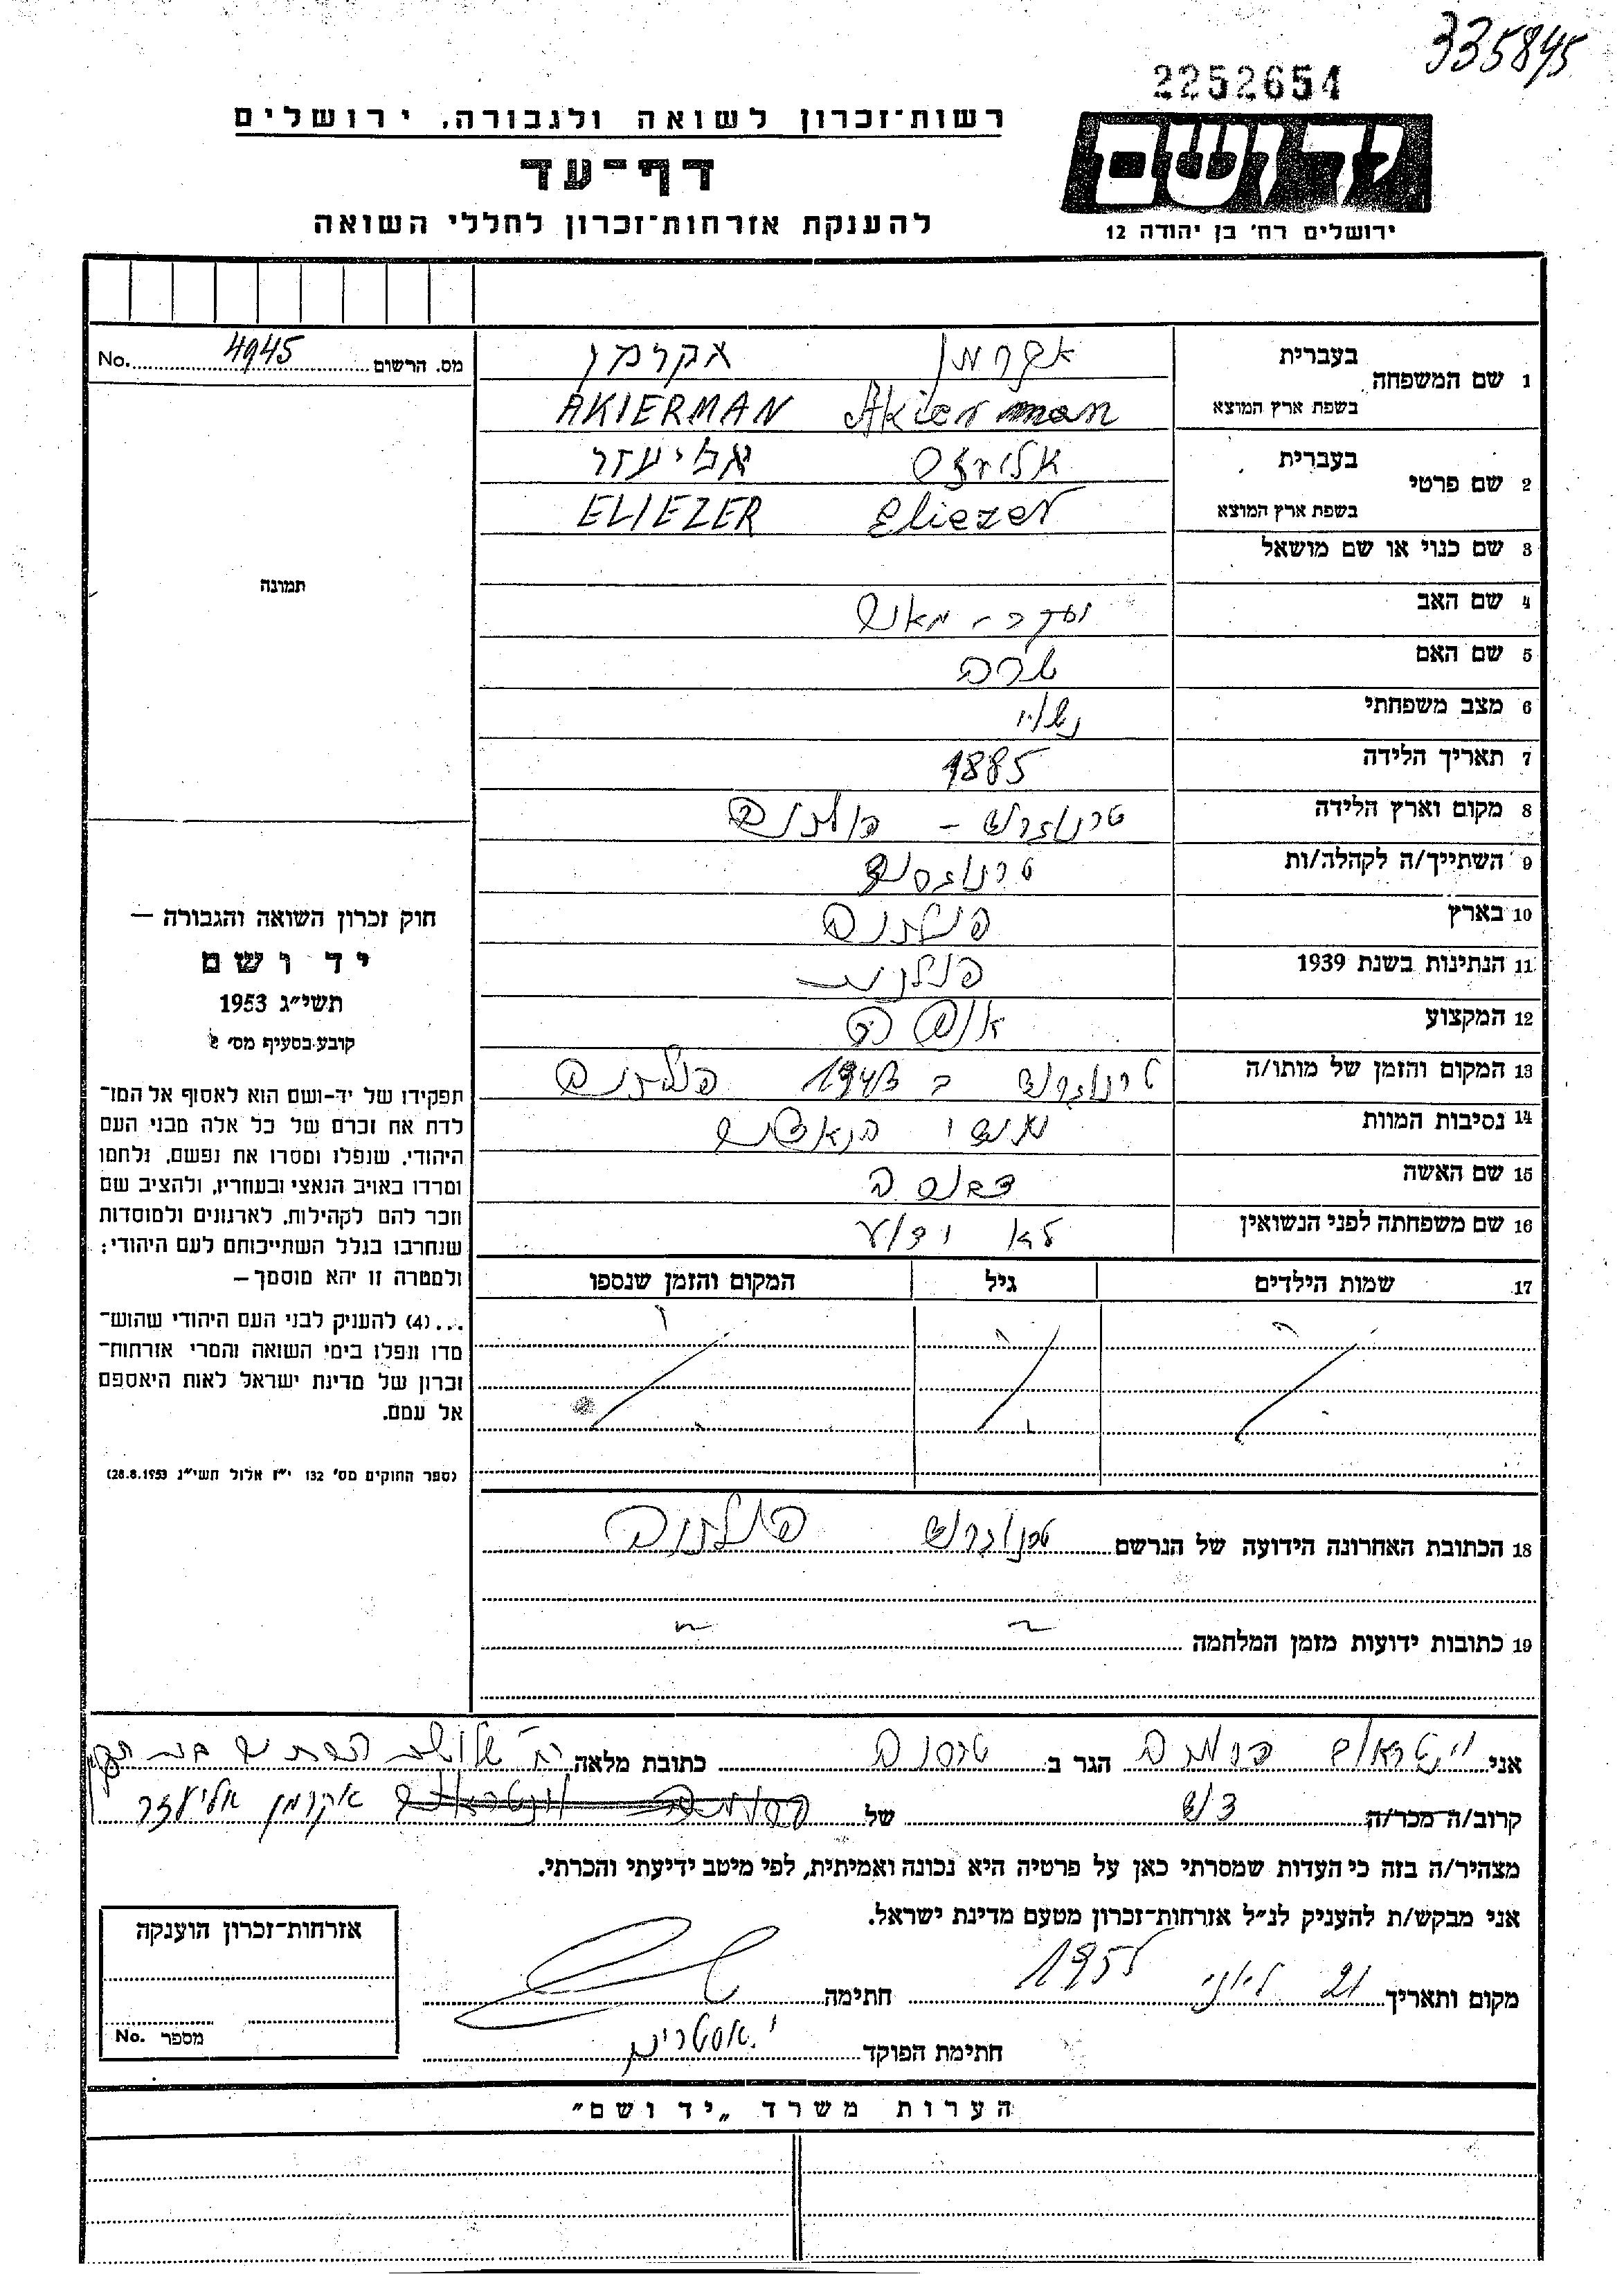 335845
2252654
רשות־זכרון לשואה ולגבורה, ירושלים
דף־עד
להענקת אזרחות־זכרון לחללי השואה
יד ושם
ירושלים רח' בן יהודה 12
מס. הרשום 4945 No.
1 שם המשפחה
בעברית אקרמן אקרמן
בשפת ארץ המוצא Akierman AKIERMAN
2 שם פרטי
בעברית אליעזר
בשפת ארץ המוצא Eliezer ELIEZER
3 שם כנוי או שם מושאל
4 שם האב
5 שם האם שרה
6 מצב משפחתי נשוי
7 תאריך הלידה 1885
8 מקום וארץ הלידה טרנוגרוד – פולניה
9 השתייך/ה לקהלה/ות טרנוגרוד
10 בארץ פולניה
11 הנתינות בשנת 1939 פולנית
12 המקצוע אופה
13 המקום והזמן של מותו/ה טרנוגרוד ב 1943 פולניה
14 נסיבות המוות
15 שם האשה
16 שם משפחתה לפני הנשואין לא ידוע
17 שמות הילדים גיל המקום והזמן שנספו
18 הכתובת האחרונה הידועה של הנרשם טרנוגרוד פולניה
19 כתובות ידועות מזמן המלחמה
תמונה
חוק זכרון השואה והגבורה —
יד ושם
תשי״ג 1953
קובע בסעיף מס' 2
תפקידו של יד-ושם הוא לאסוף אל המו־
לדת את זכרם של כל אלה מבני העם
היהודי, שנפלו ומסרו את נפשם, נלחמו
ומרדו באויב הנאצי ובעוזריו, ולהציב שם
וזכר להם לקהילות, לארגונים ולמוסדות
שנחרבו בגלל השתייכותם לעם היהודי;
ולמטרה זו יהא מוסמך —
...(4) להעניק לבני העם היהודי שהוש־
מדו ונפלו בימי השואה והמרי אזרחות־
זכרון של מדינת ישראל לאות היאספם
אל עמם.
(ספר החוקים מס' 132 י״ז אלול תשי״ג 28.8.1953)
אני הגר ב כתובת מלאה
קרוב/ה מכר/ה של אקרמן אליעזר
מצהיר/ה בזה כי העדות שמסרתי כאן על פרטיה היא נכונה ואמיתית, לפי מיטב ידיעתי והכרתי.
אני מבקש/ת להעניק לנ״ל אזרחות־זכרון מטעם מדינת ישראל.
מקום ותאריך 21 יוני 1955 חתימה
חתימת הפוקד
אזרחות־זכרון הוענקה
מספר No.
הערות משרד „יד ושם״